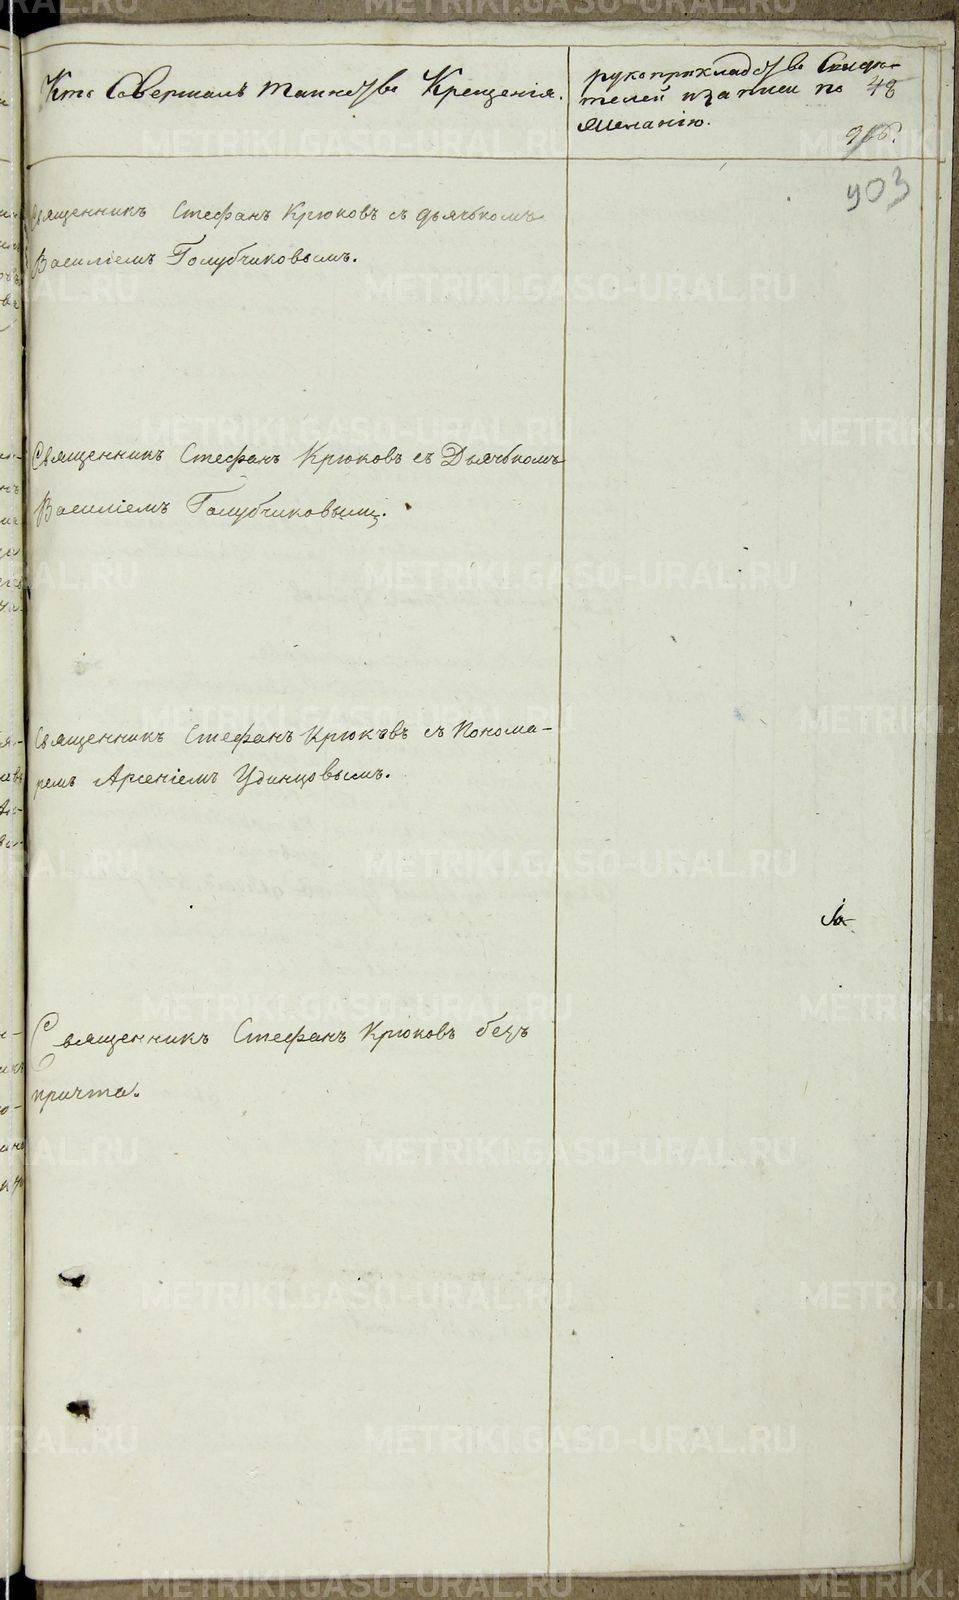 Кто Совершалъ таинство Крещенія.
рукоприкладство Свидѣ-
телей записи по
желанію.
48
903
Священникъ Стефанъ Крюковъ съ дьячькомъ
Василіемъ Голубчиковымъ.
Священникъ Стефанъ Крюковъ съ Дьячькомъ
Василіемъ Голубчиковымъ.
Священникъ Стефанъ Крюковъ съ Понома-
ремъ Арсеніемъ Удинцовымъ.
Священникъ Стефанъ Крюковъ безъ
причта.
METRIKI.GASO-URAL.RU